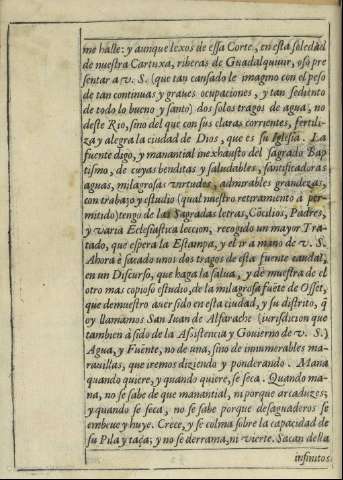 me halle: y aunque lexos de essa Corte, en esta soledad
de nuestra Cartuxa, riberas de Guadalquiuir, oso pre
sentar a v. S. (que tan cansado le imagino con el peso
de tan continuas y graues ocupaciones, y tan sediento
de todo lo bueno y santo) dos solos tragos de agua, no
deste Rio, sino del que con sus claras corrientes, fertili-
za y alegra la ciudad de Dios, que es su Iglesia. La
fuente digo, y manantial inexhausto del sagrado Bap
tismo, de cuyas benditas y saludables, santificadoras
aguas, milagrosas virtudes, admirables grandezas,
con trabajo y estudio (qual nuestro retiramiento à per-
mitido) tengo de las Sagradas letras, Cōcilios, Padres,
y varia Eclesiastica leccion, recogido un mayor Tra-
tado, que espera la Estampa, y el ir a mano de v. S.
Ahora è sacado unos dos tragos de esta fuente caudal,
en un Discurso, que haga la salua, y de muestra de el
otro mas copioso estudio, de la milagrosa fuēte de Osset,
que demuestro auer sido en esta ciudad, y su distrito, q̃
oy llamamos San Iuan de Alfarache (iurisdicion que
tambien à sido de la Assistencia y Gouierno de v. S.)
Agua, y Fuente, no de una, sino de innumerables ma-
rauillas, que iremos diziendo y ponderando. Mana
quando quiere, y quando quiere, se seca. Quando ma-
na, no se sabe de que manantial, ni porque arcaduzes;
y quando se seca, no se sabe porque desaguaderos se
embeue y huye. Crece, y se colma sobre la capacidad de
su Pila y taça; y no se derrama, ni vierte. Sacan della
infinitos